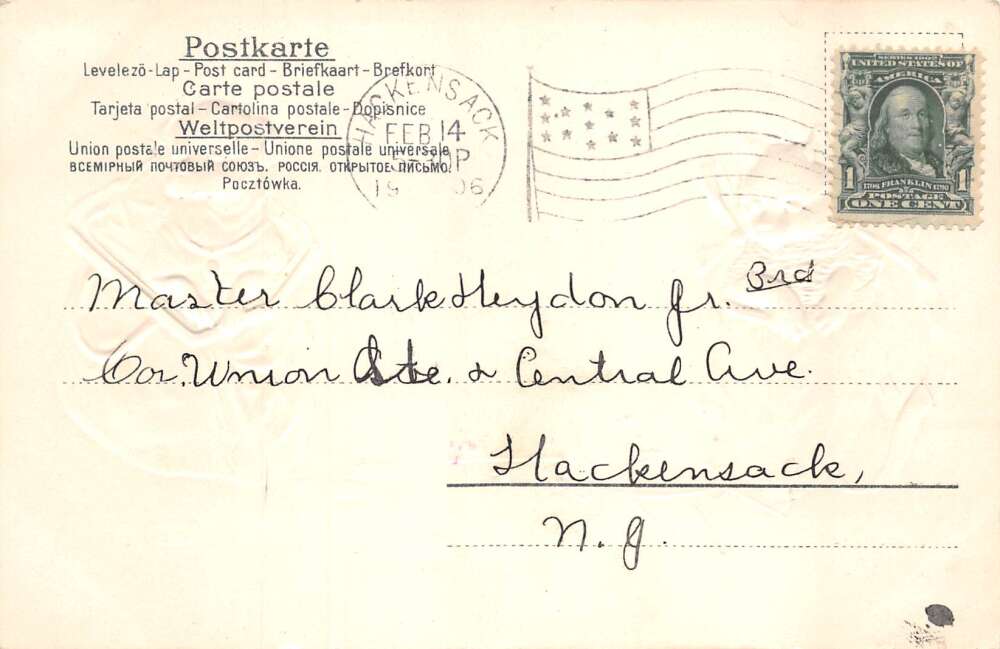 Postkarte
Levelező-Lap – Post card – Briefkaart – Brefkort
Carte postale
Tarjeta postal – Cartolina postale – Dopisnice
Weltpostverein
Union postale universelle – Unione postale universale
ВСЕМІРНЫЙ ПОЧТОВЫЙ СОЮЗЪ. РОССІЯ. ОТКРЫТОЕ ПИСЬМО.
Pocztówka.
HACKENSACK
FEB 14
P
19 06
SERIES 1902
UNITED STATES OF
AMERICA
1 FRANKLIN 1
POSTAGE
ONE CENT
Master Clark Heydon Jr. 3rd
Cor. Union Ste. & Central Ave.
Hackensack,
N. J.